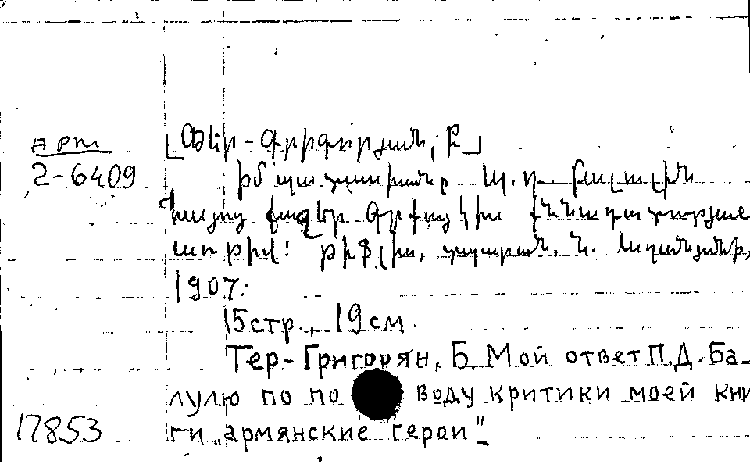 арм
2-6409
[Տեր-Գրիգորյան, Բ.]
Իմ պատասխանը
Հայոց քաջեր գրքույկիս քննադատության
առթիվ: Թիֆլիս, տպարան. Ն. Աղանյանի,
1907.
15 стр., 19 см.
Тер-Григорян, Б. Мой ответ П.Д. Ба-
лулю по по воду критики моей кни
ги „армянские герои"
17853